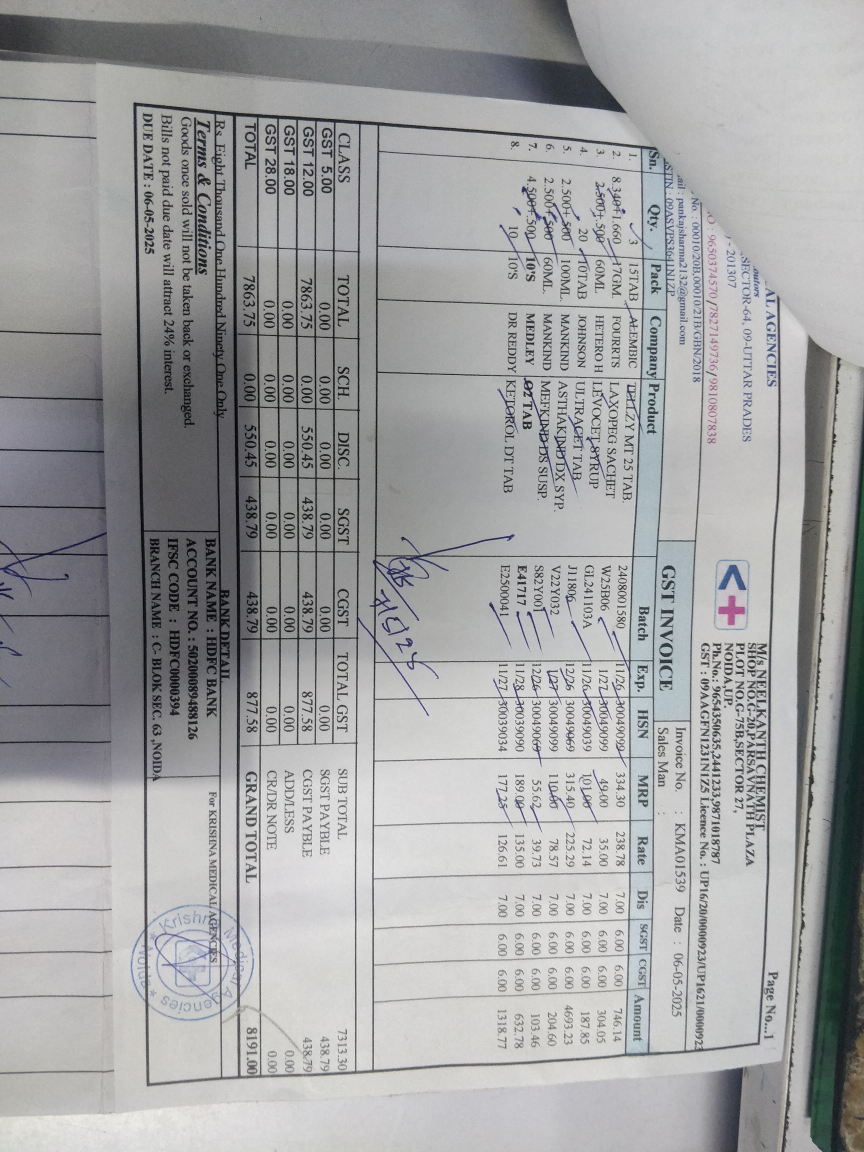 AL AGENCIES
SECTOR-64, 09-UTTAR PRADES
- 201307
NO : 9650374570/7827149736/9810807838
No. : 00010/20B,00010/21B/GBN/2018
ail : pankajsharma2132@gmail.com
STIN : 09ASVPS3641N1ZP
Page No...1
M/s NEELKANTH CHEMIST
SHOP NO.G-20,PARSAVNATH PLAZA
PLOT NO.G-75B,SECTOR 27,
NOIDA,UP.
Ph.No.: 9654350635,2441233,9871018787
GST : 09AAGFN1231N1Z5 Licence No. : UP16/20/0000923/UP1621/0000923
GST INVOICE
Invoice No. : KMA01539 Date : 06-05-2025
Sales Man :
Sn. Qty. Pack Company Product Batch Exp. HSN MRP Rate Dis SGST CGST Amount
1. 3 15TAB ALEMBIC DILIZY MT 25 TAB. 2408001580 11/26 30049099 334.30 238.78 7.00 6.00 6.00 746.14
2. 8.340+1.660 17GM. FOURRTS LAXOPEG SACHET W25B06 1/27 30049099 49.00 35.00 7.00 6.00 6.00 304.05
3. 2.500+.500 60ML. HETERO H LEVOCET SYRUP GL241103A 11/26 30049039 101.00 72.14 7.00 6.00 6.00 187.85
4. 20 10TAB JOHNSON ULTRACET TAB J11806 12/26 30049069 315.40 225.29 7.00 6.00 6.00 4693.23
5. 2.500+.500 100ML. MANKIND ASTHAKIND DX SYP. V22Y032 1/27 30049099 110.00 78.57 7.00 6.00 6.00 204.60
6. 2.500+.500 60ML. MANKIND MEFKIND DS SUSP. S82Y001 12/26 30049069 55.62 39.73 7.00 6.00 6.00 103.46
7. 4.500+.500 10'S MEDLEY O2 TAB E41717 11/28 30039090 189.00 135.00 7.00 6.00 6.00 632.78
8. 10 10'S DR REDDY KETOROL DT TAB E2500041 11/27 30039034 177.25 126.61 7.00 6.00 6.00 1318.77
7/5/25
CLASS TOTAL SCH. DISC. SGST CGST TOTAL GST
GST 5.00 0.00 0.00 0.00 0.00 0.00 0.00
GST 12.00 7863.75 0.00 550.45 438.79 438.79 877.58
GST 18.00 0.00 0.00 0.00 0.00 0.00 0.00
GST 28.00 0.00 0.00 0.00 0.00 0.00 0.00
TOTAL 7863.75 0.00 550.45 438.79 438.79 877.58
SUB TOTAL 7313.30
SGST PAYBLE 438.79
CGST PAYBLE 438.79
ADD/LESS 0.00
CR/DR NOTE 0.00
GRAND TOTAL 8191.00
Rs. Eight Thousand One Hundred Ninety One Only
Terms & Conditions
Goods once sold will not be taken back or exchanged.
Bills not paid due date will attract 24% interest.
DUE DATE : 06-05-2025
BANK DETAIL
BANK NAME : HDFC BANK
ACCOUNT NO. : 50200089488126
IFSC CODE : HDFC0000394
BRANCH NAME : C- BLOK SEC. 63 ,NOIDA
For KRISHNA MEDICAL AGENCIES
Krishna Medical Agencies